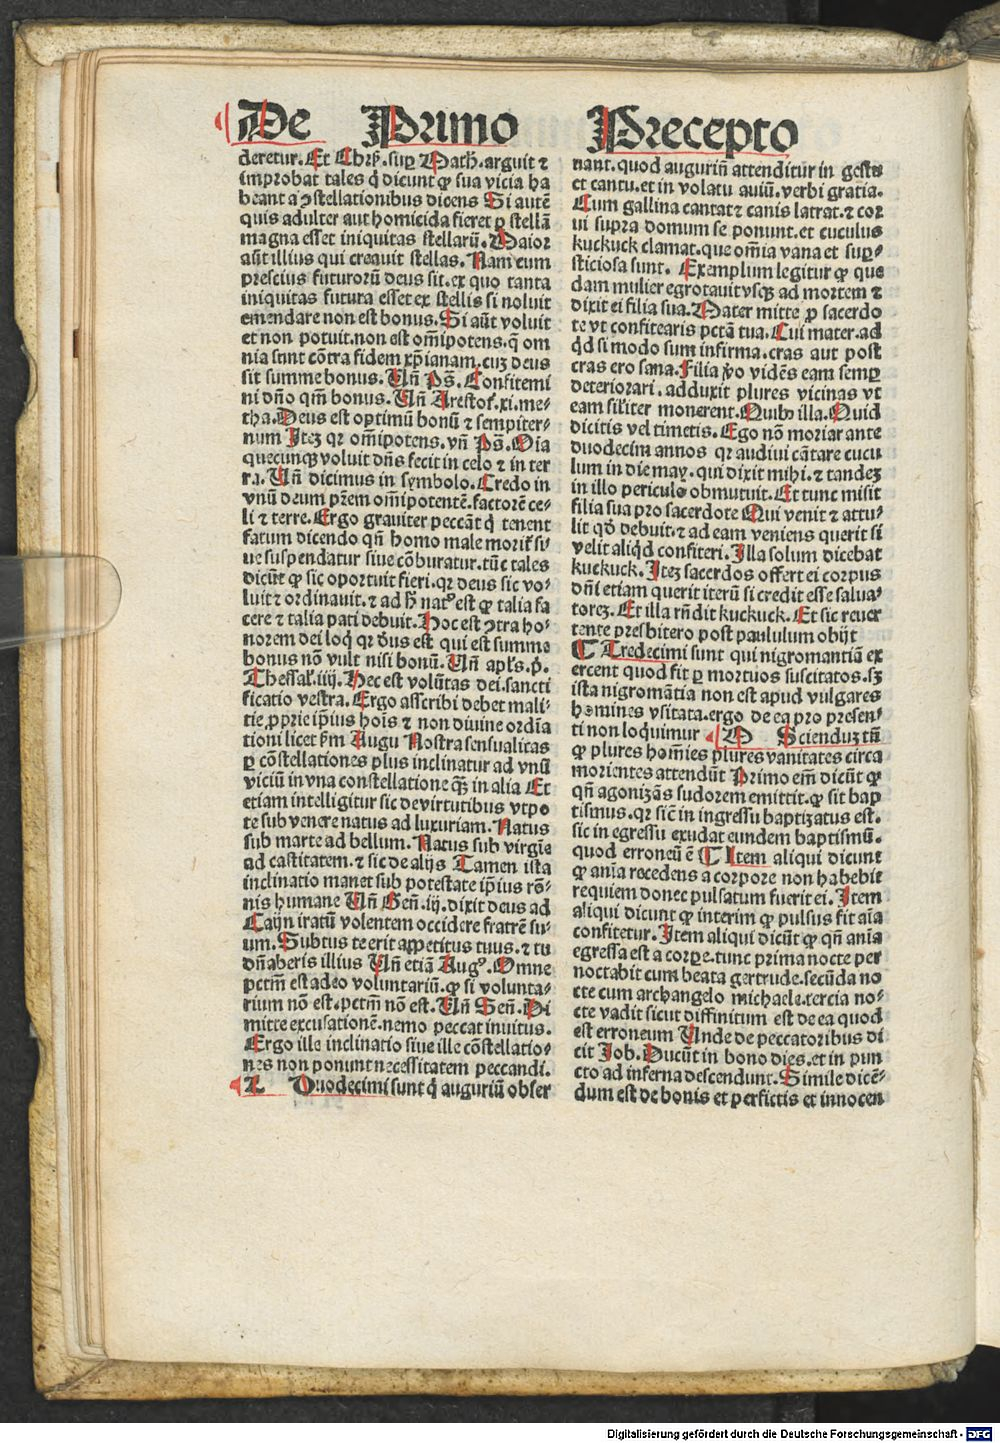 De Primo Precepto
deretur. Et Chrꝭ. suꝑ Math̄. arguit ⁊
improbat tales q̄ dicunt ꝙ sua vicia ha
beant a ↄ̄stellationibus dicens Si autē
quis adulter aut homicida fieret ꝑ stellā
magna esset iniquitas stellarū. Maior
aūt illius qui creauit stellas. Nam cum
prescius futurorū deus sit. ex quo tanta
iniquitas futura esset ex stellis si noluit
emendare non est bonus. Si aūt voluit
et non potuit. non est om̄ipotens. q̄ om
nia sunt cōtra fidem xp̄ianam. cuȝ deus
sit summe bonus. Un̄ Ps̄. Confitemi
ni dn̄o qm̄ bonus. Un̄ Arestoꝭ. xi. me-
tha. Deus est optimū bonū ⁊ sempiter-
num Iteȝ qꝛ om̄ipotens. vn̄ Ps̄. Oīa
quecunqꝫ voluit dn̄s fecit in celo ⁊ in ter
ra. Un̄ dicimus in symbolo. Credo in
vnū deum pr̄em om̄ipotentē. factorē ce-
li ⁊ terre. Ergo grauiter peccāt q̄ tenent
fatum dicendo qn̄ homo male morit̄ si-
ue suspendatur siue cōburatur. tūc tales
dicūt ꝙ sic oportuit fieri. qꝛ deus sic vo-
luit ⁊ ordinauit. ⁊ ad h̄ natꝰ est ꝙ talia fa
cere ⁊ talia pati debuit. Hoc est ↄtra ho-
norem dei loq̄ qꝛ dūs est qui est summe
bonus nō vult nisi bonū. Un̄ apl̄s. p̄.
Thessal̄. iiij. Hec est volūtas dei. sancti
ficatio vestra. Ergo asscribi debet mali-
tie ꝓprie ip̄ius hoīs ⁊ non diuine ordīa
tioni licet ẜm Augu Nostra sensualitas
ꝑ cōstellationes plus inclinatur ad vnū
viciū in vna constellatione qꝫ in alia Et
etiam intelligitur sic de virtutibus vtpo
te sub venere natus ad luxuriam. Natus
sub marte ad bellum. Natus sub virgīe
ad castitatem. ⁊ sic de alijs Tamen ista
inclinatio manet sub potestate ip̄ius rō-
nis humane Un̄ Gen̄. iij. dixit deus ad
Cayn iratū volentem occidere fratrē su-
um. Subtus te erit appetitus tuus. ⁊ tu
dn̄aberis illius Un̄ etiā Augꝰ. Omne
pctm̄ est adeo voluntariū. ꝙ si volunta-
rium nō est. pctm̄ nō est. Un̄ Sen̄. Di
mitte excusationē. nemo peccat inuitus.
Ergo ille inclinatio siue ille cōstellatio-
nes non ponunt necessitatem peccandi.
L Duodecimi sunt q̄ auguriū obser
uant. quod auguriū attenditur in gestu
et cantu. et in volatu auiū. verbi gratia.
Cum gallina cantat ⁊ canis latrat. ⁊ cor
ui supra domum se ponunt. et cuculus
kuckuck clamat. que om̄ia vana et suꝑ-
sticiosa sunt. Exemplum legitur ꝙ que
dam mulier egrotauit vsqꝫ ad mortem ⁊
dixit ei filia sua. Mater mitte ꝓ sacerdo
te vt confitearis pctā tua. Cui mater. ad
qd̄ si modo sum infirma. cras aut post
cras ero sana. Filia v̓o vidēs eam semꝑ
deteriorari. adduxit plures vicinas vt
eam sil̓iter monerent. Quibꝫ illa. Quid
dicitis vel timetis. Ego nō moriar ante
duodecim annos qꝛ audiui cātare cucu
lum in die may. qui dixit mihi. ⁊ tandeȝ
in illo periculo obmutuit. Et tunc misit
filia sua pro sacerdote Qui venit ⁊ attu-
lit qd̓ debuit. ⁊ ad eam veniens querit si
velit aliqd̄ confiteri. Illa solum dicebat
kuckuck. Iteȝ sacerdos offert ei corpus
dn̄i etiam querit iterū si credit esse salua-
toreȝ. Et illa rn̄dit kuckuck. Et sic reuer
tente presbitero post paululum obijt
¶ Tredecimi sunt qui nigromantiā ex
ercent quod fit ꝑ mortuos suscitatos. sȝ
ista nigromātia non est apud vulgares
homines vsitata. ergo de ea pro presen-
ti non loquimur M Scienduȝ tn̄
ꝙ plures hom̄ies plures vanitates circa
morientes attendūt Primo em̄ dicūt ꝙ
qn̄ agonizās sudorem emittit. ꝙ sit bap
tismus. qꝛ sic̄ in ingressu baptizatus est.
sic in egressu exudat eundem baptismū.
quod erroneū ē ¶ Item aliqui dicunt
ꝙ aīa recedens a corpore non habebit
requiem donec pulsatum fuerit ei. Item
aliqui dicunt ꝙ interim ꝙ pulsus fit aīa
confitetur. Item aliqui dicūt ꝙ qn̄ anīa
egressa est a corꝑe. tunc prima nocte per
noctabit cum beata gertrude. secūda no
cte cum archangelo michaele. tercia no-
cte vadit sicut diffinitum est de ea quod
est erroneum Unde de peccatoribus di
cit Job. Ducūt in bono dies. et in pun
cto ad inferna descendunt. Simile dicē-
dum est de bonis et perfictis et innocen
Digitalisierung gefördert durch die Deutsche Forschungsgemeinschaft - DFG